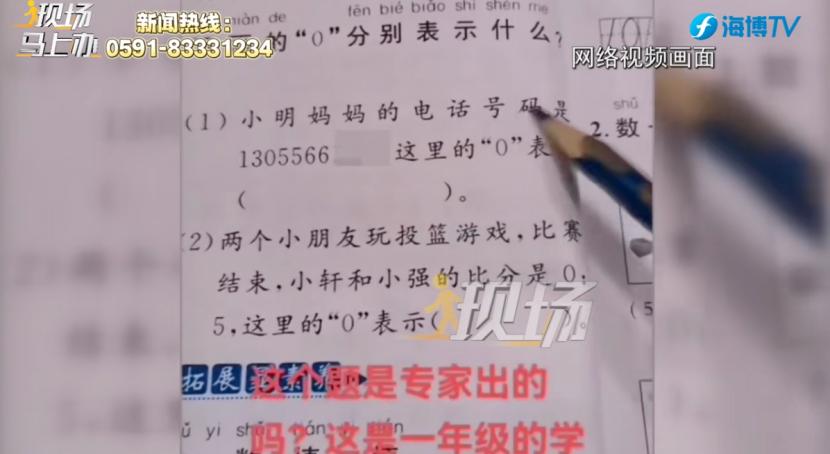 现场
马上办
新闻热线：
0591-83331234
海博TV
网络视频画面
miàn de
fēn bié biǎo shì shén me
的“0”分别表示什么？
(1)小明妈妈的电话号码是
1305566 这里的“0”表
( )。
(2)两个小朋友玩投篮游戏，比赛
结束，小轩和小强的比分是 0:
5，这里的“0”表示( )。
shǔ
2.数
(5
现场
拓展
这个题是专家出的
吗？这是一年级的学